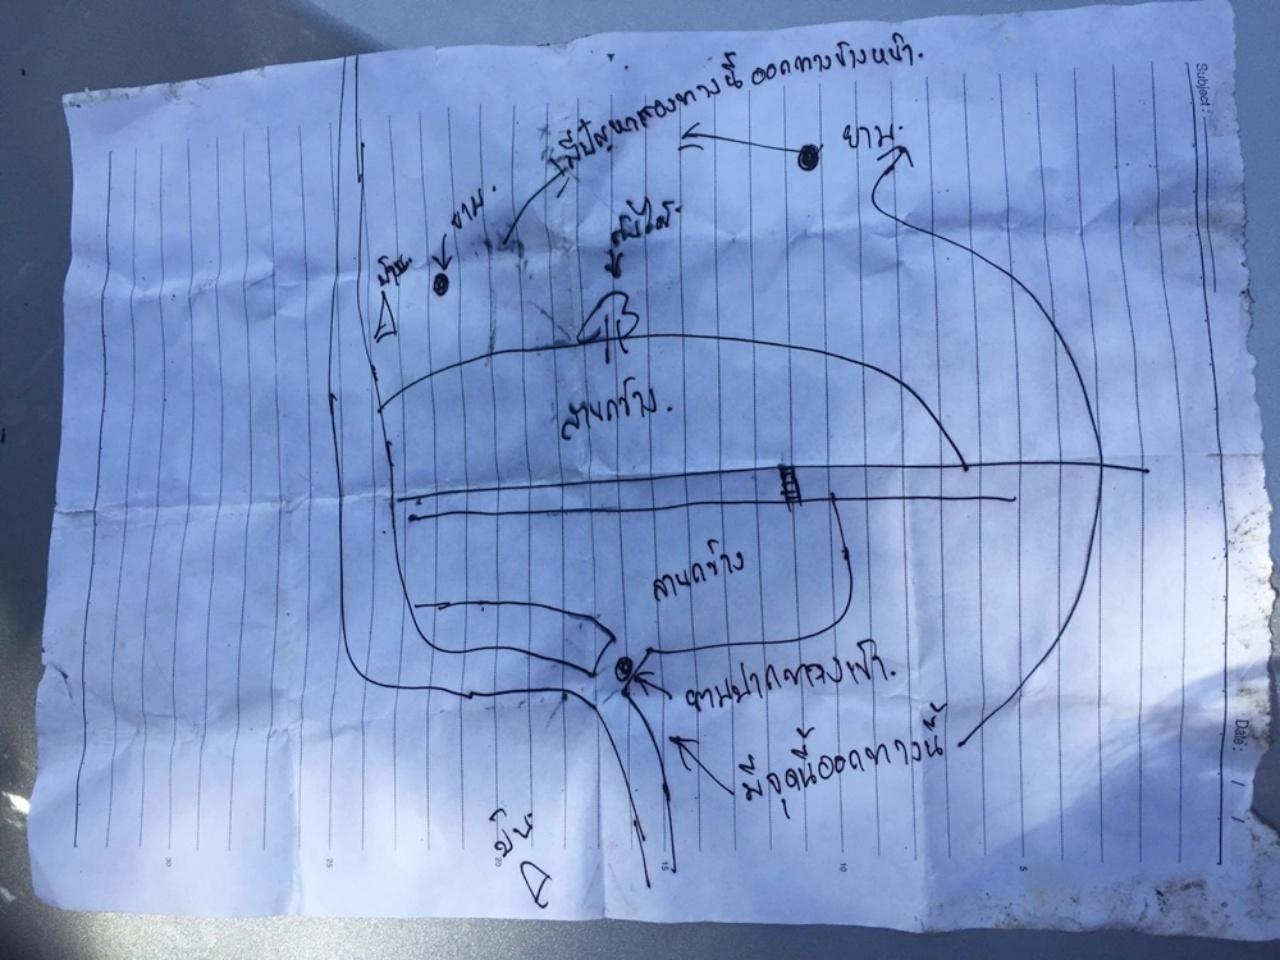 Subject :
มีปัญหาสองทางนี้ ออกทางข้างหน้า.
ยาม.
ยาม.
ต้นไม้.
ป้าย
ลานกว้าง.
ลานกว้าง
ยามปากทางเข้า.
มีจุดนี้ออกทางนี้
Date : / /
30
25
20
15
10
5